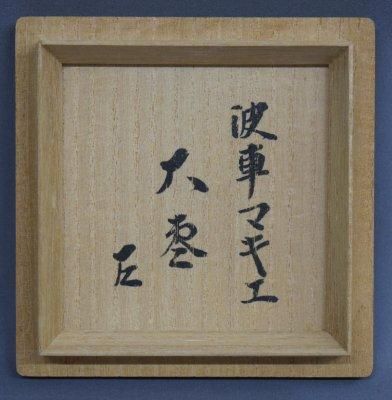 波車マキエ
大棗
左